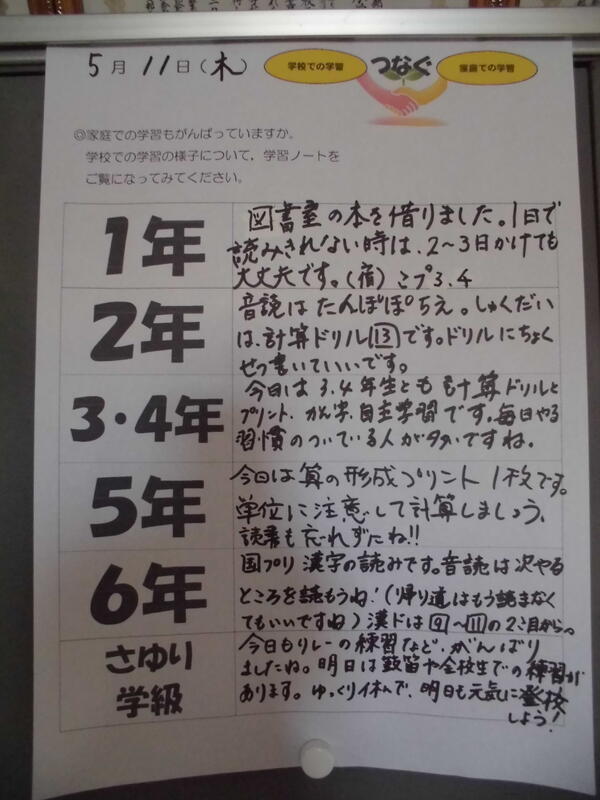 5月11日(木)
学校での学習 つなぐ 家庭での学習
◎家庭での学習もがんばっていますか。
学校での学習の様子について,学習ノートを
ご覧になってみてください。
1年
図書室の本を借りました。1日で
読みきれない時は、2〜3日かけても
大丈夫です。(宿)こプ3.4
2年
音読はたんぽぽちえ。しゅくだい
は、計算ドリル13です。ドリルにちょく
せつ書いていいです。
3・4年
今日は3.4年生とも計算ドリルと
プリント、かん字、自主学習です。毎日やる
習慣のついている人が多いですね。
5年
今日は算の形成プリント1枚です。
単位に注意して計算しましょう、
読書も忘れずにね!!
6年
国プリ漢字の読みです。音読は次やる
ところを読もうね!(帰り道はもう読まなく
てもいいですね)漢ドは9〜11の2こ目から。
さゆり
学級
今日もリレーの練習など、がんばり
ましたね。明日は鼓笛や全校生での練習が
あります。ゆっくり休んで、明日も元気に登校
しよう!